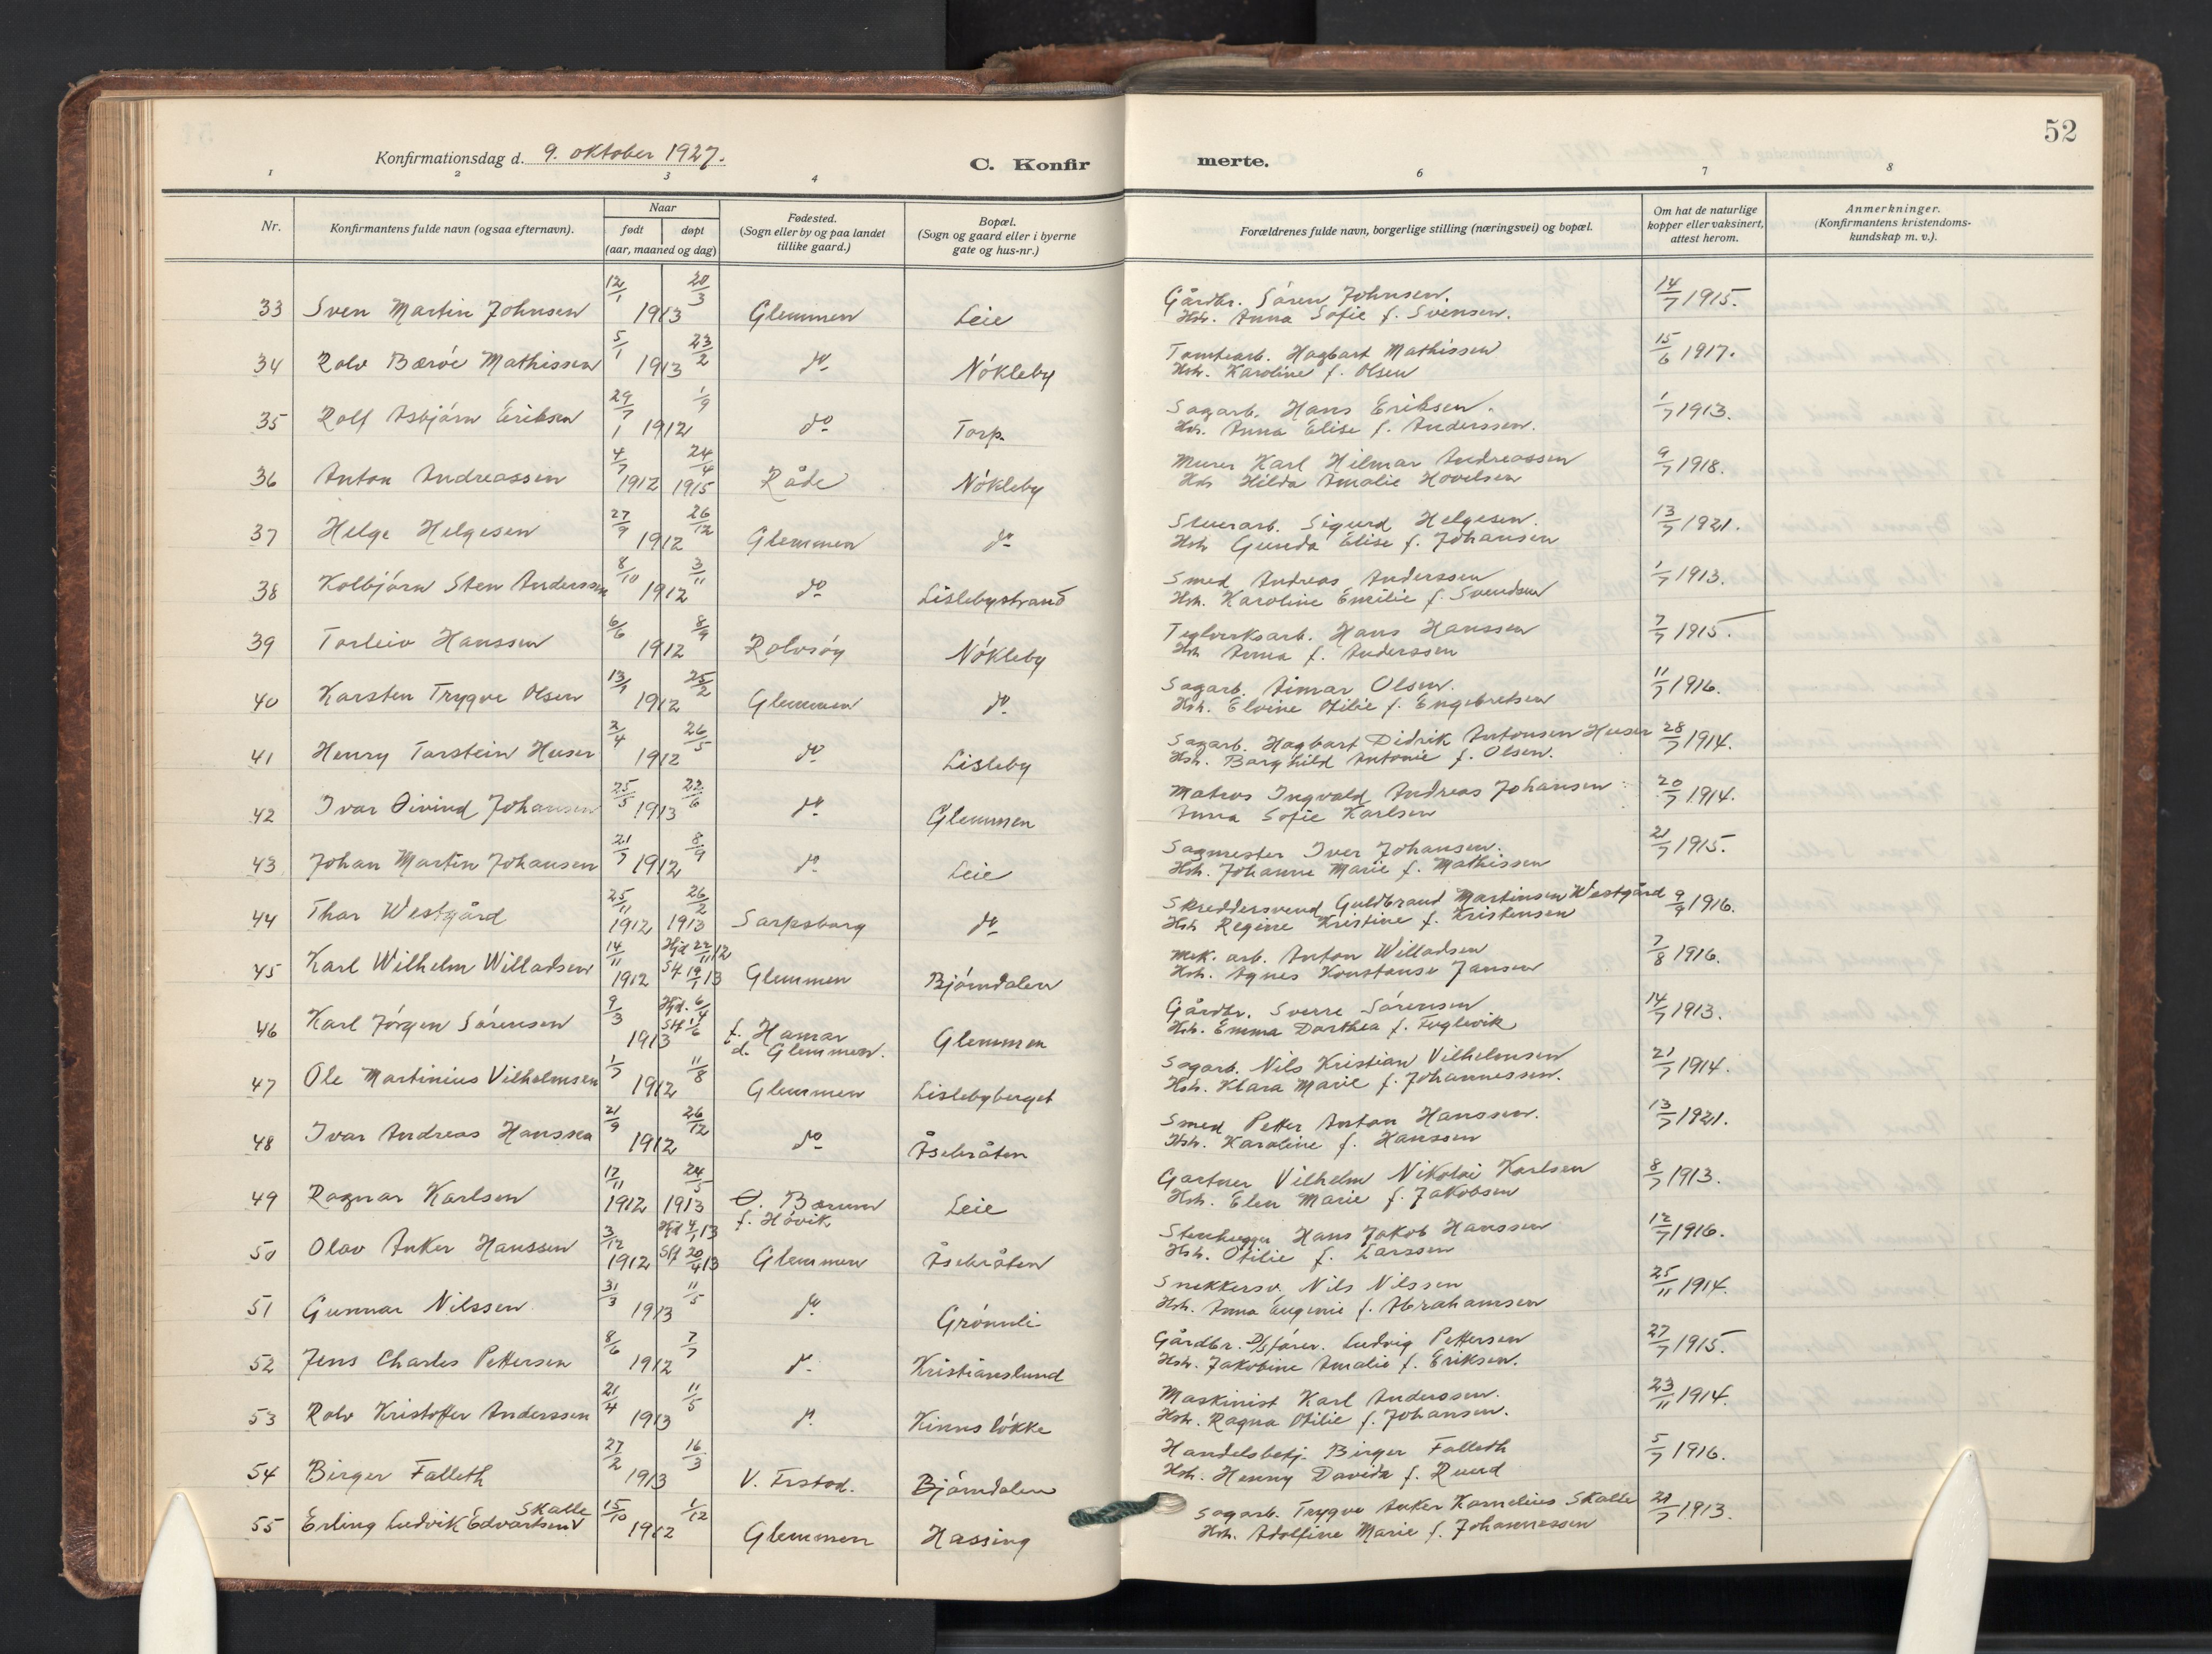 52
Konfirmationsdag d. 9. oktober 1927.
C. Konfir merte.
1 2 3 4 6 7 8
Nr. Konfirmantens fulde navn (ogsaa efternavn). Naar født døpt (aar, maaned og dag) Fødested. (Sogn eller by og paa landet tillike gaard.) Bopæl. (Sogn og gaard eller i byerne gate og hus-nr.) Forældrenes fulde navn, borgerlige stilling (næringsvei) og bopæl. Om hat de naturlige kopper eller vaksinert, attest herom. Anmerkninger. (Konfirmantens kristendoms-kundskap m. v.).
33 Sven Martin Johnsen 12/1 20/3 1913 Glemmen Leie Gårdbr. Sören Johnsen. Hstr. Anna Sofie f. Svensen. 14/7 1915.
34 Rolv Bæröe Mathissen 5/1 23/2 1913 do Nökleby Tomtearb. Hagbart Mathissen Hstr. Karoline f. Olsen 15/6 1917.
35 Rolf Asbjörn Eriksen 29/7 1/9 1912 do Torp. Sagarb. Hans Eriksen. Hstr. Anna Elise f. Anderssen. 1/7 1913.
36 Anton Andreassen 4/7 1912 24/4 1915 Råde Nökleby Murer Karl Hilmar Andreassen Hstr Hilda Amalie Hovelsen 9/7 1918.
37 Helge Helgesen 27/9 26/12 1912 Glemmen do Stuerarb. Sigurd Helgesen. Hstr Gunda Elise f. Johansen 13/7 1921.
38 Kolbjörn Sten Anderssen 8/10 3/11 1912 do Lislebystrand Smed Andreas Anderssen Hstr. Karoline Emilie f. Svendsen 1/7 1913.
39 Torleiv Hanssen 6/6 8/9 1912 Rolvsöy Nökleby Teglverksarb. Hans Hanssen Hstr Anna f. Anderssen 7/7 1915.
40 Karsten Trygve Olsen 13/1 25/2 1912 Glemmen do Sagarb. Aimar Olsen. Hstr. Elvine Otilie f. Engebretsen 11/7 1916.
41 Henry Torstein Huser 2/4 26/5 1912 do Lisleby Sagarb. Hagbart Didrik Antonsen Huser Hstr. Borghild Antonie f. Olsen. 28/7 1914.
42 Ivar Öivind Johansen 25/5 22/6 1913 do Glemmen Matros Ingvald Andreas Johansen Anna Sofie Karlsen 20/7 1914.
43 Johan Martin Johansen 21/7 8/9 1912 do Leie Sagmester Iver Johansen. Hstr. Johanne Marie f. Mathissen 21/7 1915.
44 Thor Westgård 25/11 1912 26/2 1913 Sarpsborg do Skreddersvend Guldbrand Martinsen Westgård Hstr Regine Kristine f. Kristensen 9/9 1916.
45 Karl Wilhelm Willadsen 14/11 1912 Hjd 22/11 12 Stf 19/1 13 Glemmen Björndalen Mek. arb. Anton Willadsen Hstr. Agnes Konstanse Jansen 7/8 1916.
46 Karl Jörgen Sörensen 9/3 Hjd. 6/4 Stf 1/6 1913 f. Hamar d. Glemmen. Glemmen Gårdbr. Sverre Sörensen Hstr. Emma Dorthea f. Fuglevik 14/7 1913.
47 Ole Martinius Vilhelmsen 1/7 11/8 1912 Glemmen Lislebyberget Sagarb. Nils Kristian Vilhelmsen Hstr. Klara Marie f. Johannessen. 21/7 1914.
48 Ivar Andreas Hanssen 21/9 26/12 1912 do Åsebråten Smed Petter Anton Hanssen. Hstr. Karoline f. Hanssen 13/7 1921.
49 Ragnar Karlsen 17/11 1912 24/5 1913 Ö. Bærum f. Hövik Leie Gartner Vilhelm Nikolai Karlsen Hstr. Elen Marie f. Jakobsen 8/7 1913.
50 Olav Anker Hanssen 3/12 1912 Hjd 4/1 13 Stf 20/4 13 Glemmen Åsebråten Stenhugger Hans Jakob Hanssen Hstr. Otilie f. Larssen 12/7 1916.
51 Gunnar Nilssen 31/3 11/5 1913 do Grönnli Snekkersv. Nils Nilssen Hstr. Anna Eugenie f. Abrahamsen 25/11 1914.
52 Jens Charles Pettersen 8/6 7/7 1912 do Kristianslund Gårdbr. D/S förer. Ludvig Pettersen Hstr. Jakobine Amalie f. Eriksen. 27/7 1915.
53 Rolv Kristoffer Anderssen 21/4 11/5 1913 do Kinnslökke Maskinist Karl Anderssen. Hstr. Ragna Otilie f. Johansen. 23/11 1914.
54 Birger Falleth 27/2 16/3 1913 V. Frstad. Björndalen Handelsbetj. Birger Falleth Hstr. Henny Davida f. Ruud 5/7 1916.
55 Erling Ludvik Edvartsen Skalle 15/10 1/12 1912 Glemmen Hassing Sagarb. Trygve Anker Kornelius Skalle Hstr. Adolfine Marie f. Johannessen 21/7 1913.